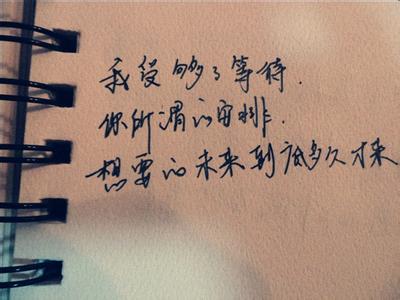 我受够了等待.
你所谓的安排.
想要的未来到底多久才来